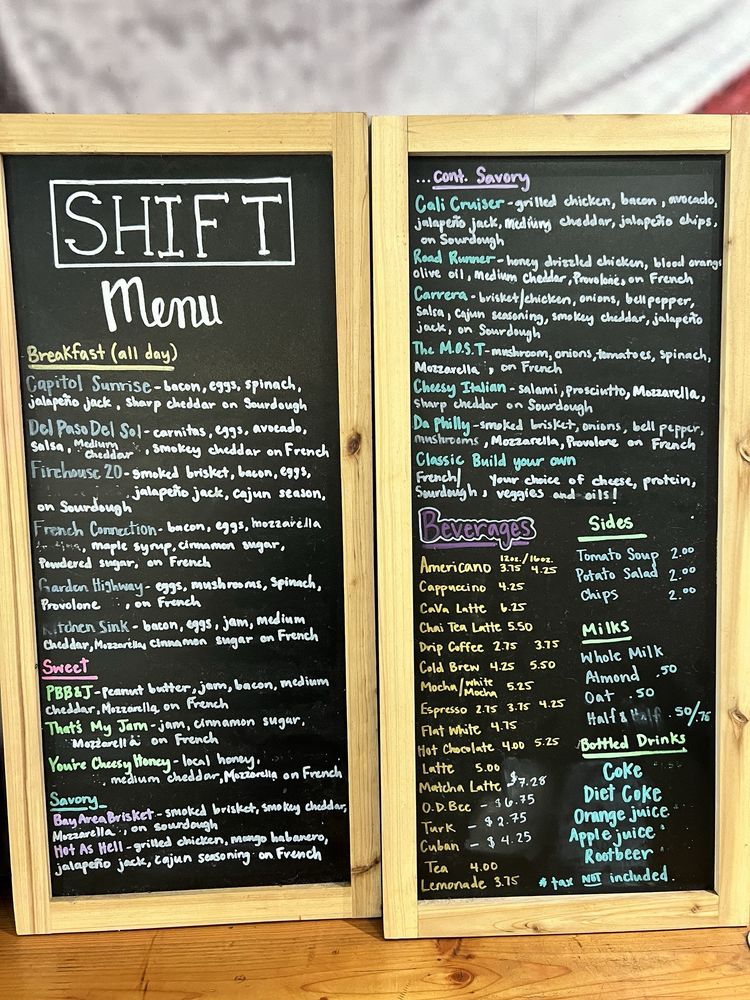 SHIFT
Menu
Breakfast (all day)
Capitol Sunrise - bacon, eggs, spinach,
jalapeño jack, sharp cheddar on Sourdough
Del Paso Del Sol - carnitas, eggs, avocado,
salsa, Medium cheddar, smokey cheddar on French
Firehouse 20 - smoked brisket, bacon, eggs,
jalapeño jack, cajun season,
on Sourdough
French Connection - bacon, eggs, mozzarella
, maple syrup, cinnamon sugar,
Powdered sugar, on French
Garden Highway - eggs, mushrooms, spinach,
Provolone , on French
Kitchen Sink - bacon, eggs, jam, medium
cheddar, Mozzarella, cinnamon sugar on French
Sweet
PBB&J - peanut butter, jam, bacon, medium
cheddar, Mozzarella, on French
That's My Jam - jam, cinnamon sugar,
Mozzarella on French
You're Cheesy Honey - local honey,
medium cheddar, Mozzarella on French
Savory
Bay Area Brisket - smoked brisket, smokey cheddar,
Mozzarella , on sourdough
Hot As Hell - grilled chicken, mango habanero,
jalapeño jack, cajun seasoning on French
...cont. Savory
Cali Cruiser - grilled chicken, bacon, avocado,
jalapeño jack, medium cheddar, jalapeño chips,
on Sourdough
Road Runner - honey drizzled chicken, blood orange
olive oil, Medium cheddar, Provolone, on French
Carrera - brisket/chicken, onions, bell pepper,
salsa, cajun seasoning, smokey cheddar, jalapeño
jack, on Sourdough
The M.O.S.T - mushroom, onions, tomatoes, spinach,
Mozzarella , on French
Cheesy Italian - salami, Prosciutto, Mozzarella,
sharp cheddar on Sourdough
Da Philly - smoked brisket, onions, bell pepper,
mushrooms, Mozzarella, Provolone on French
Classic Build your own
French/ your choice of cheese, protein,
Sourdough, veggies and oils!
Beverages
12oz./16oz.
Americano 3.75 4.25
Cappuccino 4.25
CaVa Latte 6.25
Chai Tea Latte 5.50
Drip Coffee 2.75 3.75
Cold Brew 4.25 5.50
Mocha/White Mocha 5.25
Espresso 2.75 3.75 4.25
Flat White 4.75
Hot Chocolate 4.00 5.25
Latte 5.00
Matcha Latte $7.28
O.D.Bee - $6.75
Turk - $2.75
Cuban - $4.25
Tea 4.00
Lemonade 3.75
Sides
Tomato Soup 2.00
Potato Salad 2.00
Chips 2.00
Milks
Whole Milk
Almond .50
Oat .50
Half & Half .50/75
Bottled Drinks
Coke
Diet Coke
Orange juice
Apple juice
Rootbeer
* tax NOT included.